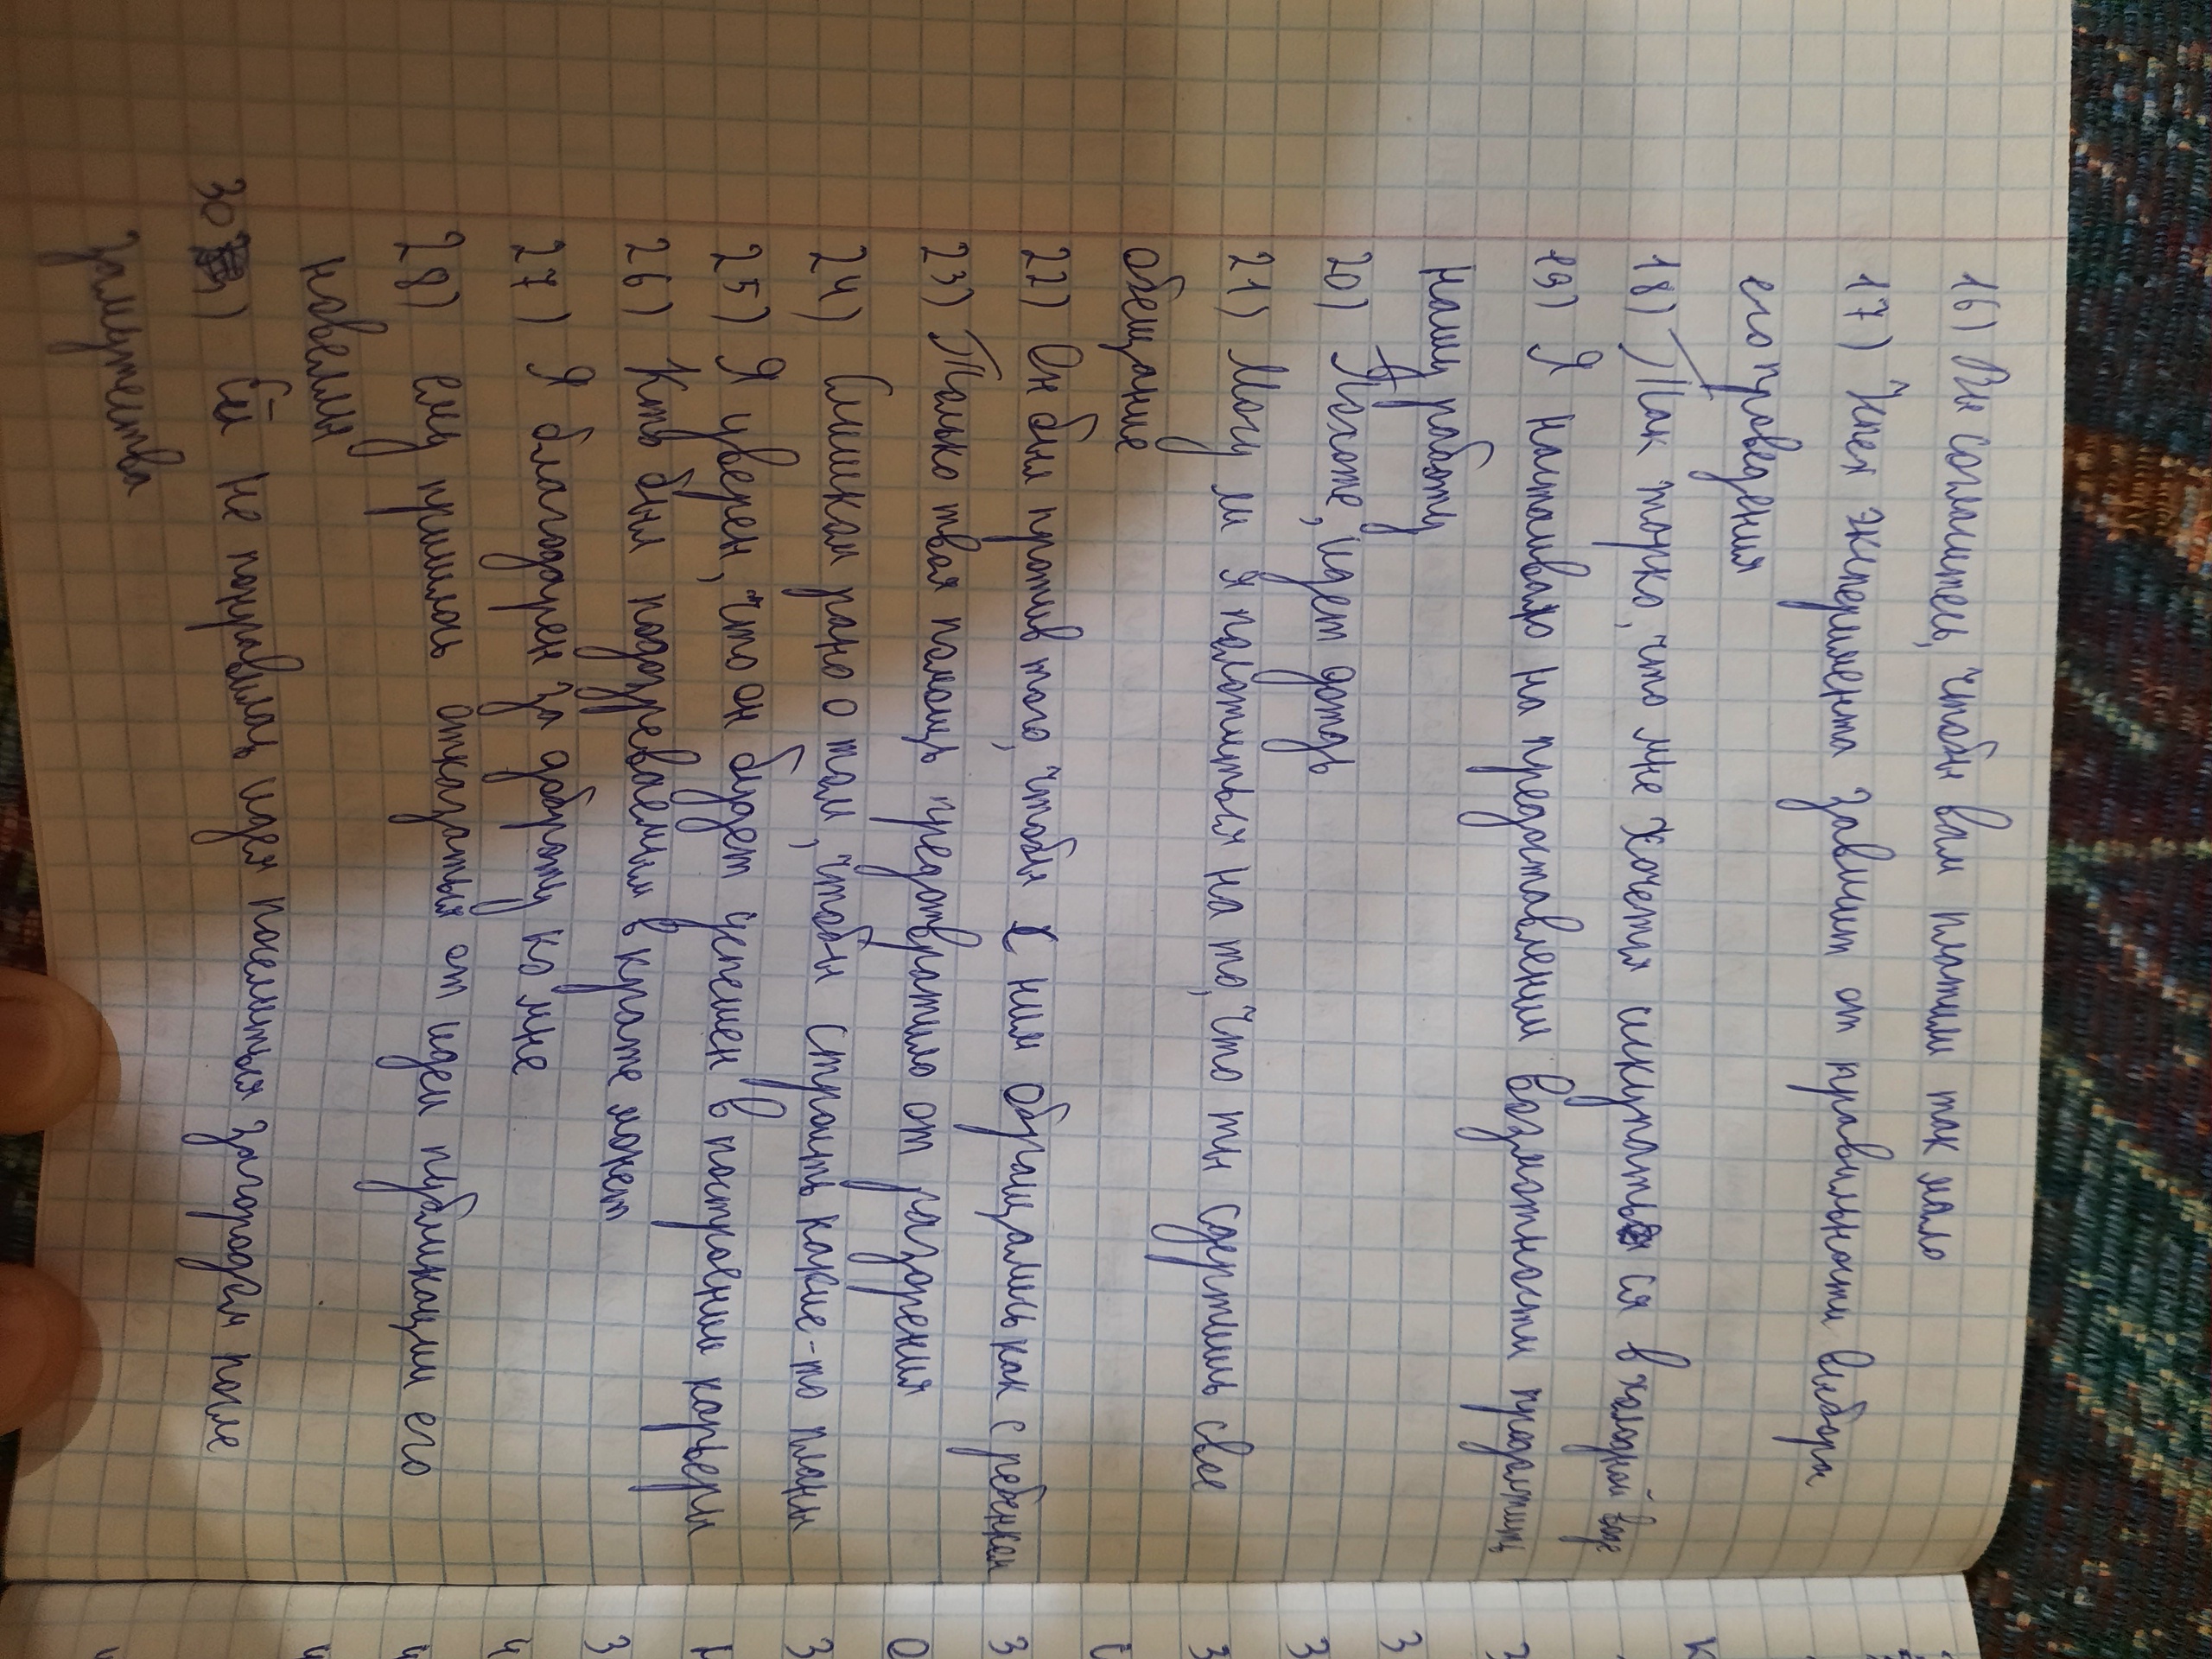 16) Вы согласитесь, чтобы вам платили так мало
17) Успех эксперимента зависит от правильности выбора
его проведения
18) Так жарко, что мне хочется искупаться в холодной воде
19) Я настаиваю на предоставлении возможности продолжить
нашу работу
20) Поготе, идет дождь
21) Могу ли я положиться на то, что ты сдержишь свое
обещание
22) Он был против того, чтобы с ним обращались как с ребенком
23) Только твоя помощь предотвратило от разорения
24) Слишком рано о том, чтобы строить какие-то планы
25) Я уверен, что он будет успешен в построении карьеры
26) Кто был подозреваемым в краже монет
27) Я благодарен за доброту ко мне
28) ему пришлось отказаться от идеи публикации его
новеллы
30) Ей не понравилась идея поселиться загородом после
замужества